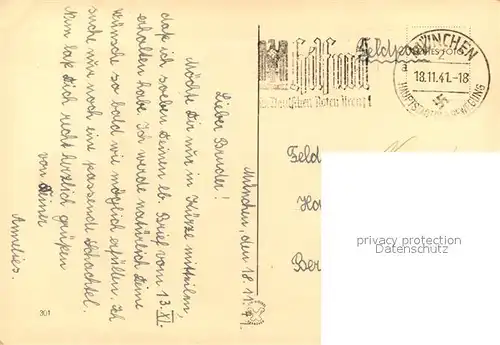 München, den 18.11.41.
Lieber Bruder!
Möchte Dir nur in Kürze mitteilen,
daß ich soeben Deinen lb. Brief vom 13. XI.
erhalten habe. Ich werde natürlich Deine
Wünsche so bald wie möglich erfüllen. Ich
suche nur noch eine passende Schachtel.
Nun laß Dich recht herzlich grüßen
von Deiner
Annelies.
301
Helft mit
im Deutschen Roten Kreuz!
Feldpost
MÜNCHEN
2
a
18.11.41.-18
HAUPTSTADT DER BEWEGUNG
Feld
Ber
privacy protection
Datenschutz